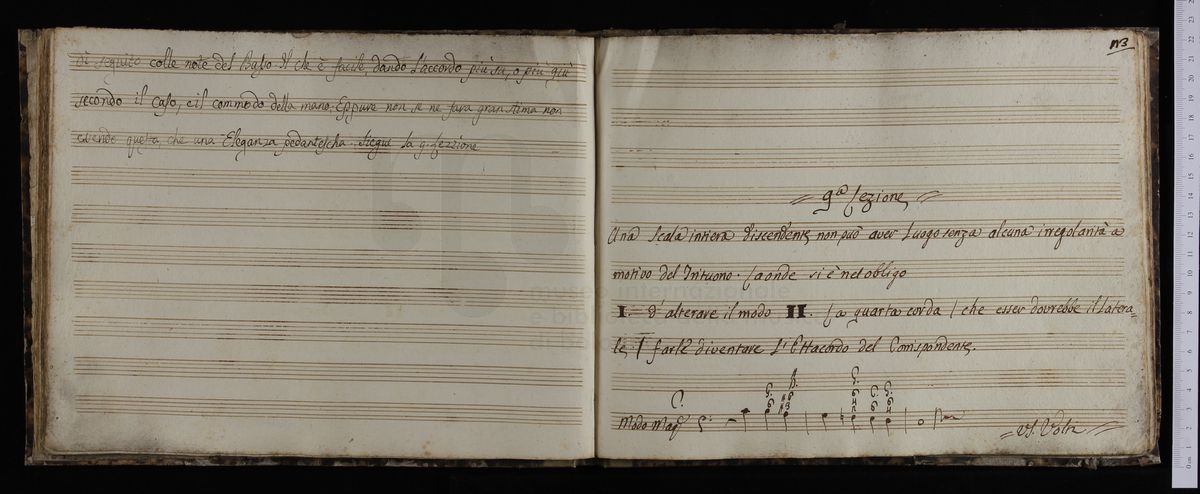 di seguito colle note del Basso Il che è facile, dando l'accordo più sù, o più giù
secondo il Caso, e il commodo della mano. Eppure non se ne fara gran stima non
essendo questa, che una Eleganza pedantescha. Siegue la 9. Lezzione
113
9.a Lezione
Una Scala intiera discendente non può aver luogo senza alcuna irregolarità a
motivo del Trituono. Laonde si è nel obligo
I. d'alterare il modo II. La quarta corda / che esser dovrebbe il Latera=
le / farle diventare l'Ettacordo del Corrispondente.
Modo Mag.e
V.S. Volti
museo internazionale